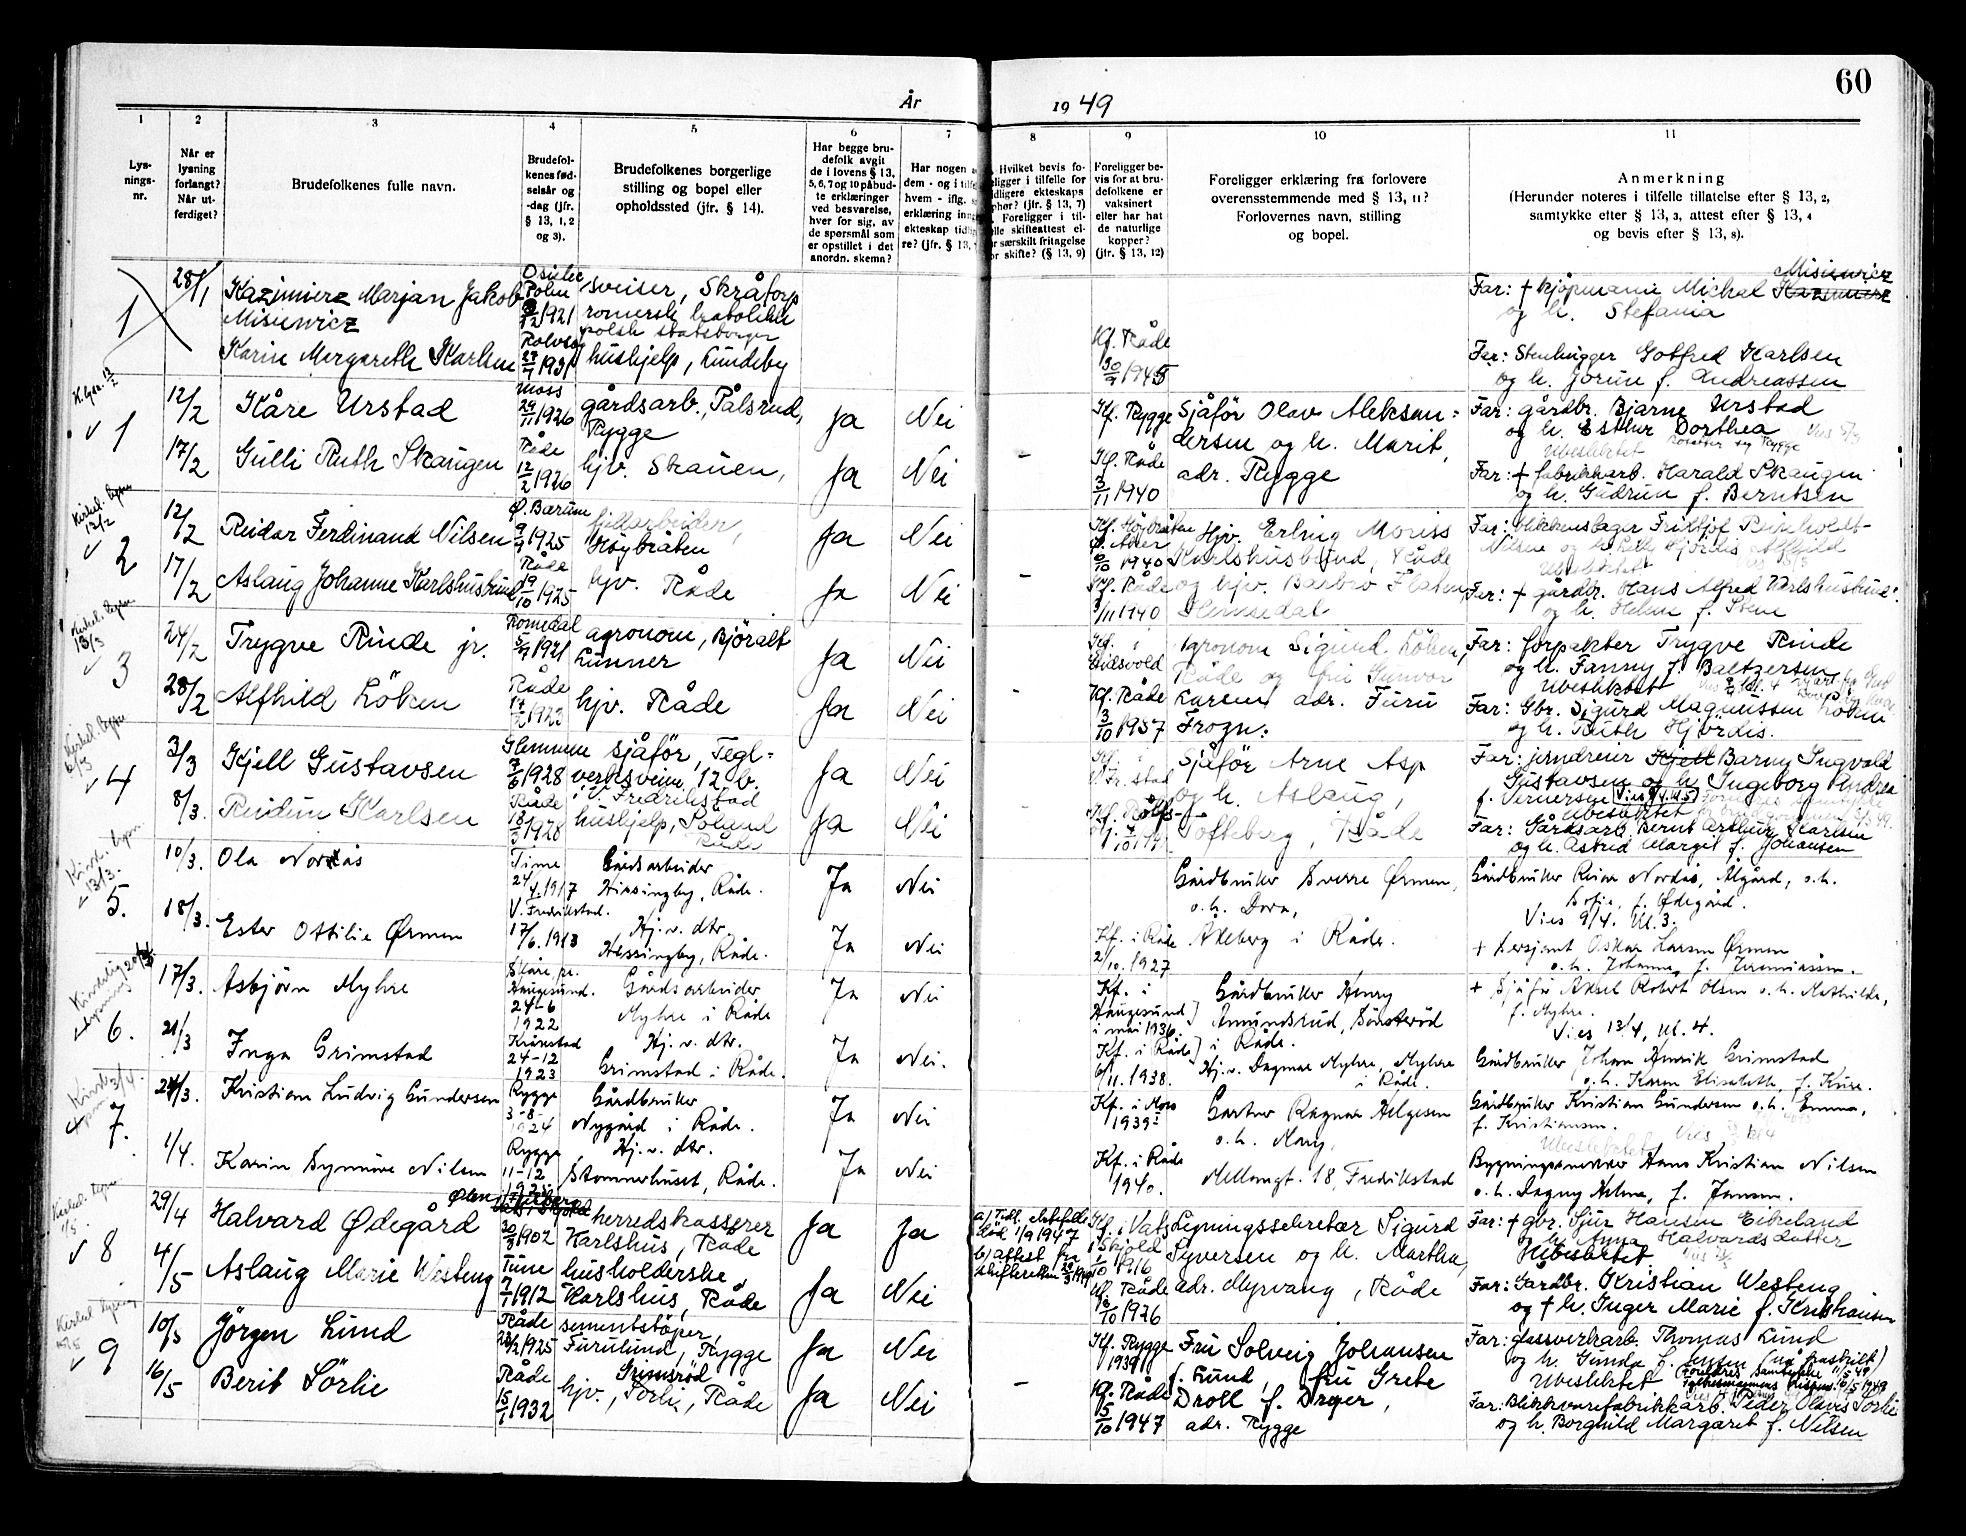 60
År
19 49
1
2
3
4
5
6
7
8
9
10
11
Lys-
nings-
nr.
Når er
lysning
forlangt?
Når ut-
ferdiget?
Brudefolkenes fulle navn.
Brudefol-
kenes fød-
selsår og
-dag (jfr.
§ 13, 1, 2
og 3).
Brudefolkenes borgerlige
stilling og bopel eller
opholdssted (jfr. § 14).
Har begge bru-
defolk avgit
de i lovens § 13,
5, 6, 7 og 10 påbud-
te erklæringer
ved besvarelse,
hver for sig, av
de spørsmål som
er opstillet i det
anordn. skema?
Har nogen
dem - og i
hvem - iflg.
erklæring
ekteskap
re? (jfr. § 13,
Hvilket bevis fo-
religger i tilfelle for
tidligere ekteskaps
ophør? (jfr. § 13, 7)
Foreligger i til-
felle skifteattest el-
ler særskilt fritagelse
for skifte? (§ 13, 9)
Foreligger be-
vis for at bru-
defolkene er
vaksinert
eller har hat
de naturlige
kopper?
(jfr. § 13, 12)
Foreligger erklæring fra forlovere
overensstemmende med § 13, 11?
Forlovernes navn, stilling
og bopel.
Anmerkning
(Herunder noteres i tilfelle tillatelse efter § 13, 2,
samtykke efter § 13, 3, attest efter § 13, 4
og bevis efter § 13, 8).
1
28/1
Kazimierz Marjan Jakob
Misiewicz
Polen
1921
sveiser, Skråtorp
romersk katolikk
polsk statsborger
Far: + kjøpmann Michal Kazimierz Misiewicz
og h. Stefania
Karin Margareth Karlsen
1931
hushjelp, Lundeby
Kf. Råde
30/9 1945
Far: Stenhugger Gotfred Karlsen
og h. Jorun f. Andreassen
1
12/2
Kåre Urstad
Moss
29/11 1926
gårdsarb., Pålsrud,
Rygge
Ja
Nei
Kf. Rygge
Sjåför Olav Aleksan-
dersen og h. Marit,
adr. Rygge
Far: gårdbr. Bjarne Urstad
og h. Esther Dorthea
Ubeslektet
17/2
Gulli Ruth Skaugen
Råde
12/2 1926
hjv. Strauen,
Ja
Nei
-
Kf. Råde
3/11 1940
Far: + fabrikkarb. Harald Skaugen
og h. Gudrun f. Berntsen
Kirkel. lysn
12/2
2
12/2
Reidar Ferdinand Nilsen
Ø. Bærum
9/9 1925
Höybråten
Ja
Nei
Hjv. Erling Moriss
Karlshusbund, Råde
og hjv. Barbro Flaten,
Hemsedal
Far: blikkenslager Fritjof Reinholdt-
Nilsen
17/2
Aslaug Johanne Karlshusbund
Råde
19/10 1925
hjv. Råde
Ja
Nei
-
Kf. Råde
3/11 1940
Far: + gårdbr. Hans Alfred Karlshusbund
og h. Helene f. Stene
Kirkel. lysn
13/3
3
24/2
Trygve Rinde jr.
Romedal
5/9 1921
agronom, Björalt
Lunner
Ja
Nei
Kf. i
Eidsvold
Agronom Sigurd Löken,
Råde og fru Gunvor
Larsen adr. Furu
Frogn.
Far: forpakter Trygve Rinde
og h. Fanny f. Baltzersen
Ubeslektet
28/2
Alfhild Löken
Råde
1923
hjv. Råde
Ja
Nei
-
Kf. Råde
3/10 1937
Far: Gbr. Sigurd Magnussen Löken
og h. Ruth Hjördis.
Kirkel. lysn
6/3
4
3/3
Kjell Gustavsen
Glemmen
7/6 1928
sjåför, Tegl-
verksveien 12 b.
i V. Fredrikstad
Ja
Nei
Sjåför Arne Asp
og h. Aslaug,
Tofteberg, Råde
Far: jerndreier Kjell Barny Ingvald
Gustavsen og h. Ingeborg Andrea
f. Vernersen
Ubeslektet
8/3.
Reidun Karlsen
Råde
1928
hushjelp, Soland
Råde
Ja
Nei
Far: Gårdsarb. Bernt Arthur Karlsen
og h. Astrid Margit f. Johansen
Kirkl. lysn.
13/3.
5.
10/3.
Ola Nordås
Time
24/4.1917
Gårdsarbeider
Ja
Nei
Gårdbruker Sverre Ørmen,
o.h. Dora,
Akeberg i Råde.
Gårdbruker Reinar Nordås, Ålgård, o.h.
Sofie, f. Ødegård.
Vies 9/4. Kl.3.
18/3.
Ester Ottilie Ørmen
V. Fredrikstad.
17/6.1913
Hj.v. dtr.
Ja
Nei
Kf. i Råde
2/10.1927
+ Sersjant Oskar Larsen Ørmen
o.h. Johanne, f. Jeremiassen.
6.
17/3.
Asbjørn Myhre
Skåre pr.
Haugesund.
24-6
1922
Gårdsarbeider
Myhre i Råde
Ja
Nei
Kf. i
Haugesund
i mai 1936.
Gårdbruker Henry
Amundsrud, Sønsterød
i Råde.
Hj.v. Dagmar Myhre, Myhre
i Råde.
+ Sjåfør Aksel Robert Olsen o.h. Mathilde,
f. Myhre.
Vies 13/4, kl. 4.
21/3
Inga Grimstad
24-12
1923
Hj.v. dtr.
Grimstad i Råde.
Ja
Nei.
Kf. i Råde
6/11.1938.
Gårdbruker Johan Henrik Grimstad
o.h. Karen Elisabeth, f. Kure.
7.
24/3.
Kristian Ludvig Gundersen
Rygge
3-8-
1924
Gårdbruker
Nygård i Råde.
Ja
Nei
Kf. i Moss
1939
Gartner Ragnar Helgesen
o.h. Mary,
Mellomgt. 18, Fredrikstad
Gårdbruker Kristian Gundersen o.h. Emma,
f. Kristiansen.
Ubeslektet
1/4.
Karin Synnöve Nilsen
Rygge
11-12
Hj.v. dtr.
Stommerhuset, Råde.
Ja
Nei
Kf. i Råde
1940.
Bygningssnekker Hans Kristian Nilsen
o.h. Dagny Helene, f. Jensen.
Kirkel. lysn
1/5.
8
29/4
Halvard Ødegård
Ølen
20/3 1902
herredskasserer
Karlshus, Råde
Ja
Ja
a) Tidl. ektefelle
död 1/9 1947
b) attest fra
skifteretten
Kf. i Vats
i Skjold
1/10 1916
Ligningssekretær Sigurd
Syversen og h. Martha,
adr. Myrvang, Råde
Far: + gbr. Sjur Hansen Eikeland
og h. Anna Halvardsdatter
Ubeslektet
4/5
Aslaug Marie Westeng
Tune
7/1 1912
husholderske
Karlshus, Råde
Ja
Nei
Kf. Råde
1926
Far: Gårdbr. Kristian Westeng
og + h. Inger Marie f. Kristiansen
Kirkel. lysning
15/5
9
10/5
Jörgen Lund
Råde
28/2 1925
sementstöper,
Furulund, Rygge
Ja
Nei
Kf. Rygge
1939
Fru Solveig Johansen
f. Lund, fru Grete
Droll f. Dreyer,
adr. Rygge
Far: glassverkarb. Thomas Lund
og h. Gunda f. Jensen (nå fraskilt)
Ubeslektet
16/5
Berit Sörlie
Råde
15/1 1932
Grimsröd
hjv., Sörli, Råde
Ja
Nei
-
Kf. Råde
5/10 1947
Far: Blikkvarefabrikkarb. Peder Olavis Sörlie
og h. Borghild Margaret f. Nilsen